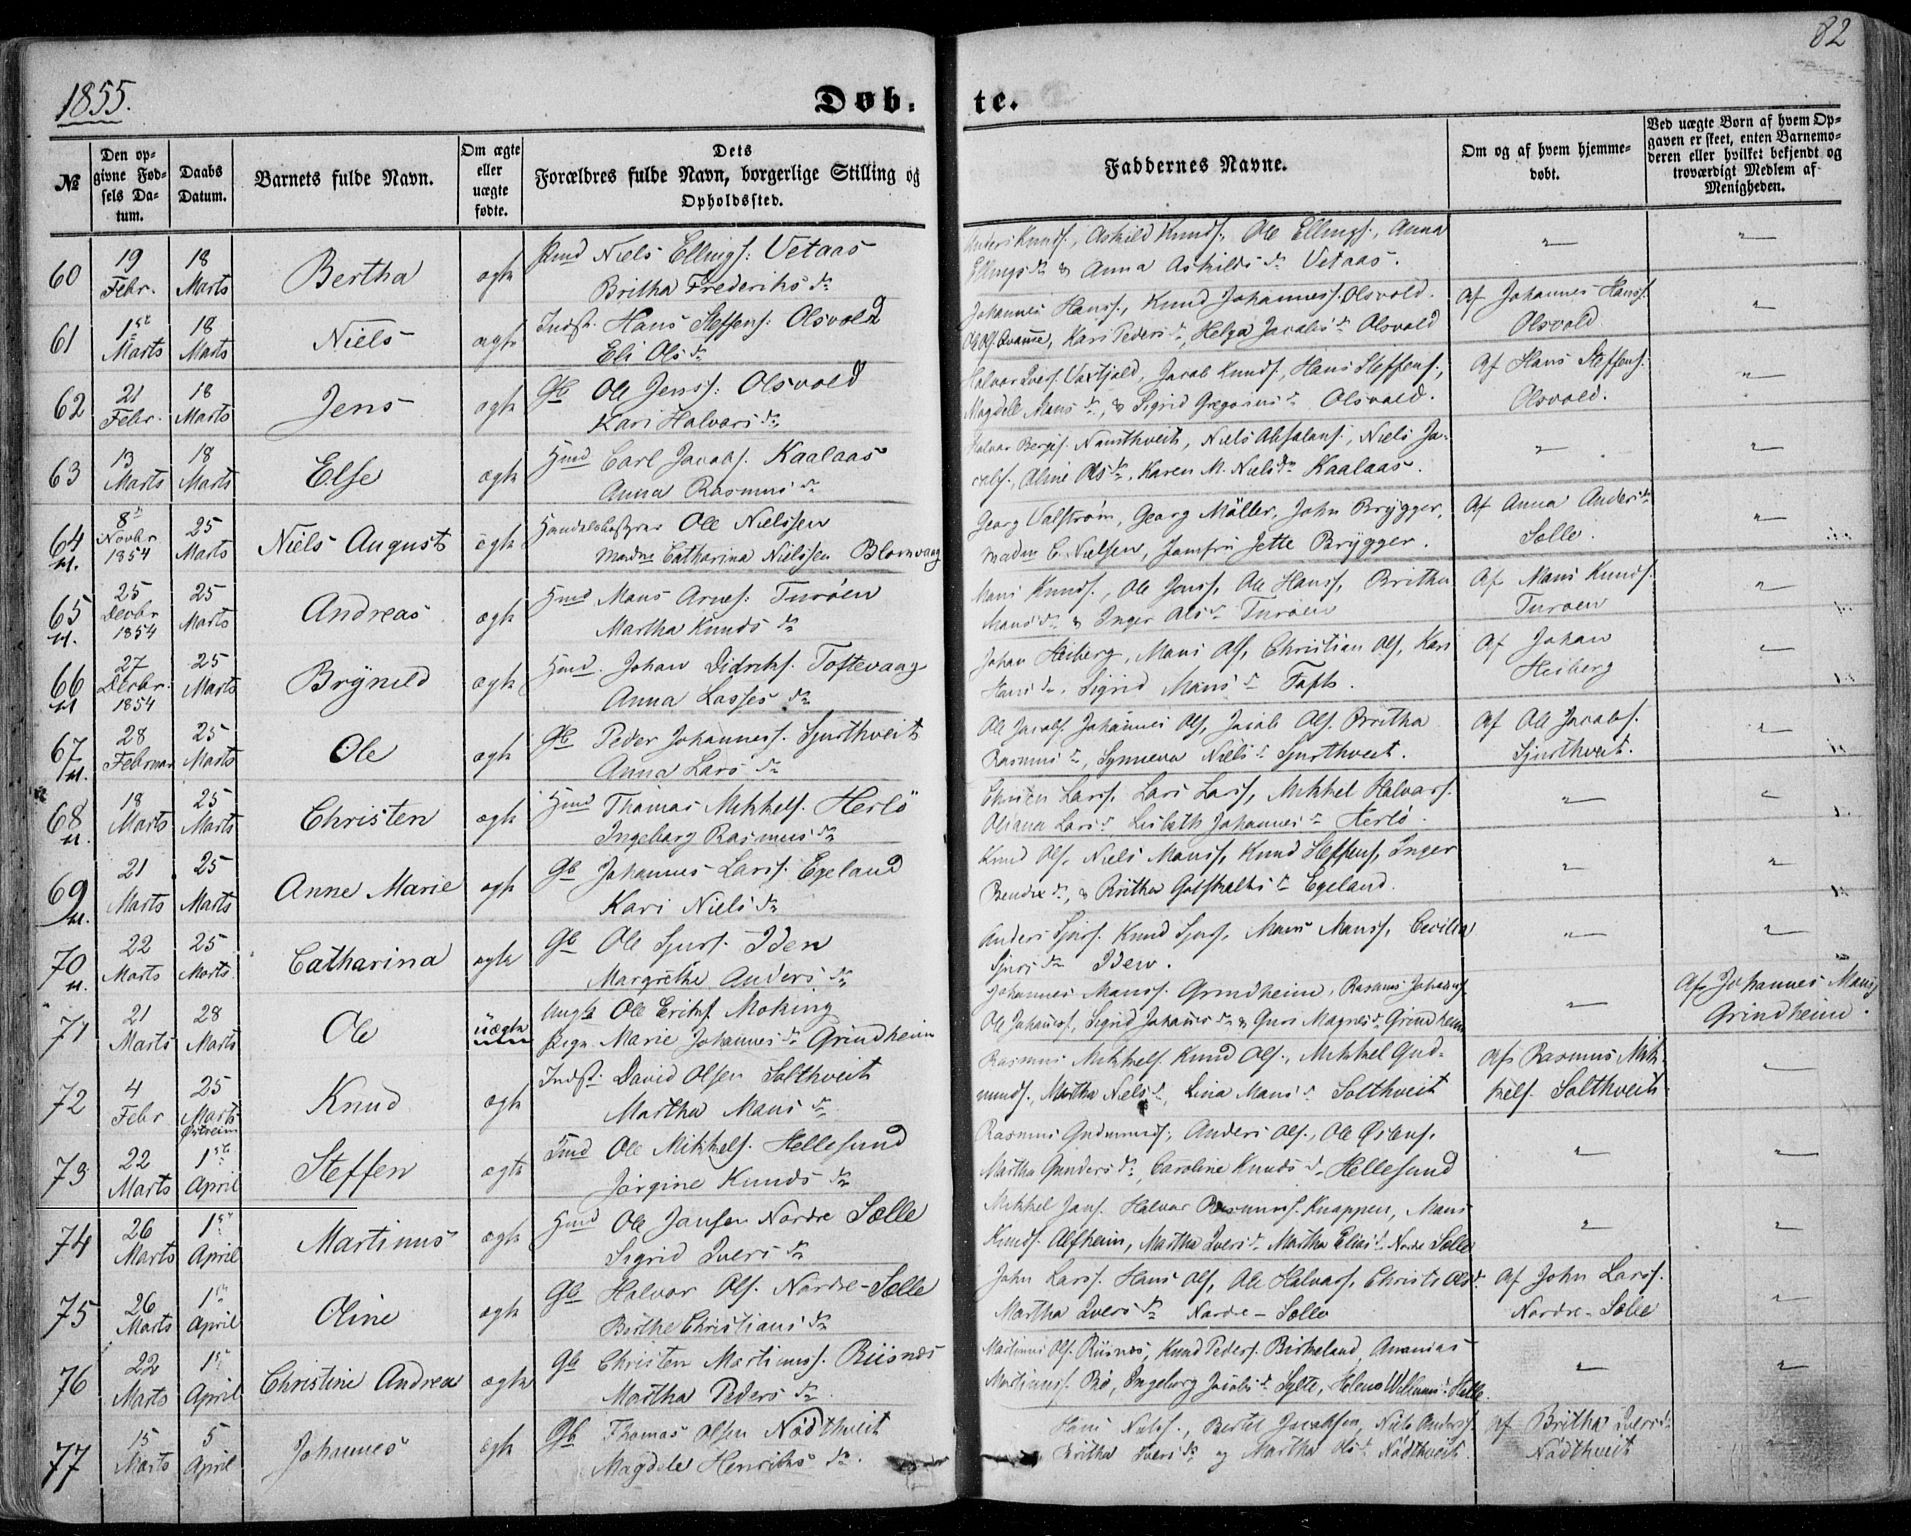 82
1855.
Døb. te.
№
Den opgivne Fødsels Datum.
Daabs Datum.
Barnets fulde Navn.
Om ægte eller uægte fødte.
Dets Forældres fulde Navn, borgerlige Stilling og Opholdssted.
Faddernes Navne.
Om og af hvem hjemmedøbt.
Ved uægte Børn af hvem Opgaven er skeet, enten Barnemoderen eller hvilket bekjendt og troværdigt Medlem af Menigheden.
60 19 Febr. 18 Marts Bertha ægte Niels Ellings. Vetaas
Britha Frederiks dr
Anders Knuds., Askild Knuds., Ole Ellings., Anna
Ellings dr & Anna Askilds dr Vetaas.
61 1ste Marts 18 Marts Niels ægte Indst. Hans Steffens. Olsvold
Eli Ols dr
Johannes Hanss., Knud Johanness. Olsvold.
Kari Peders dr, Helga Jacobs dr Olsvold
Af Johannes Hanss.
Olsvold.
62 21 Febr. 18 Marts Jens ægte Gb Ole Jenss. Olsvold
Kari Halvors dr
Halvor Ivers. Jacob Knuds., Hans Steffens.,
Magdele Mons dr, & Sigrid Gregorius dr Olsvold.
Af Hans Steffens.
Olsvold.
63 13 Marts 18 Marts Else ægte Hmd Carl Jacobs. Kaalaas
Anna Rasmus dr
Halvor Niels Absalons., Niels Jacobs., Aline Ols dr, Karen M. Niels dr Kaalaas.
64 8de Novbr 1854 25 Marts Niels August ægte Ole Nielssen
Madme Catharina Nielssen Blomvaag
Georg Valstrøm, Georg Møller, John Brygger,
Madm C. Nielsen, Jomfru Jette Brygger.
Af Anna Anders dr
Solle.
65 25 Decbr 1854 25 Marts Andreas ægte Hmd Mons Arnes. Turøen
Martha Knuds dr
Mons Knuds., Ole Jonss., Ole Hanss., Britha
Mons dr & Inger Ols dr Turøen
Af Mons Knuds.
Turøen
66 27 Decbr. 1854 25 Marts Brynild ægte Hmd. Johan Didriks. Toftevaag
Anna Lasses dr
Johan Heiberg, Mons Ols., Christian Ols., Kari
Hans dr, Sigrid Mons dr Toft.
Af Johan
Heiberg
67 28 Februar 25 Marts Ole ægte Gb Peder Johanness. Sjurthveit
Anna Lars dr
Ole Jacobs. Johannes Ols., Jacob Ols. Britha
Rasmus dr, Synneva Niels dr Sjurthveit.
Af Ole Jacobs.
Sjurthveit.
68 18 Marts 25 Marts Christen ægte Hmd Thomas Mikkels. Herlø
Ingeborg Rasmus dr
Christen Larss. Lars Larss., Mikkel Halvors.
Oliana Lars dr Lisbeth Johannes dr Herlø.
69 21 Marts 25 Marts Anne Marie ægte Gb Johannes Larss. Egeland
Kari Niels dr
Knud Ols., Niels Monss., Knud Steffens., Inger
& Britha Gotskalks dr Egeland.
70 22 Marts 25 Marts Catharina ægte Gb Ole Sjurs. Iden
Margrethe Anders dr
Anders Sjurs. Knud Sjurs., Mons Monss., Cecilia
Sjurs dr Iden.
71 21 Marts 28 Marts Ole uægte Ungk Ole Eriks. Moking
Pigen Marie Johannes dr Grindheim
Johannes Monss. Grindheim, Rasmus Johanss.
Ole Johanss., Sigrid Johans dr & Guri Magnes dr Grindheim
Af Johannes Mons.
Grindheim.
72 4 Febr 25 Marts Knud ægte Indst. David Olsen Solthveit
Martha Mons dr
Rasmus Mikkels. Knud Ols., Mikkel Gudmunds., Martha Niels dr, Lina Mons dr Solthveit
Af Rasmus Mikkels. Solthveit
73 22 Marts 1ste April Steffen ægte Ole Mikkels. Hellesund
Jørgine Knuds dr
Rasmus Anders Ols., Ole
Martha Gunders dr, Caroline Knuds dr Hellesund
74 26 Marts 1ste April Martinus ægte Hmd Ole Jansen Nordre Sælle
Sigrid Ivers dr
Mikkel Jans. Halvor Rasmuss. Knappen, Mons
Knuds. Alfheim, Martha Ivers dr Martha Elias dr Nordre Sælle
75 26 Marts 1ste April Oline ægte Gb Halvor Ols. Nordre-Sælle
Birthe Christians dr
John Larss. Hans Ols., Ole Halvors., Christi Ols dr
Martha Ivers dr Nordre-Sælle
Af John Larss.
Nordre-Sælle
76 22 Marts 1ste April Christine Andrea ægte Gb Christen Martinuss. Riisnes
Martha Peders dr
Martinus Ols. Riisnes, Knud Peders. Birkeland, Ananias
Martinuss. Bø, Ingeborg Jacobs dr Sylte, Helena Willums dr
77 15 Marts 5 April Johannes ægte Gb Thomas Olsen Nødthveit
Magdele Henriks dr.
Hans Nielss., Bertel Jacobsen, Niels Anderss.
Britha Ivers dr og Martha Ols dr Nødthveit.
Af Britha Ivers dr
Nødthveit